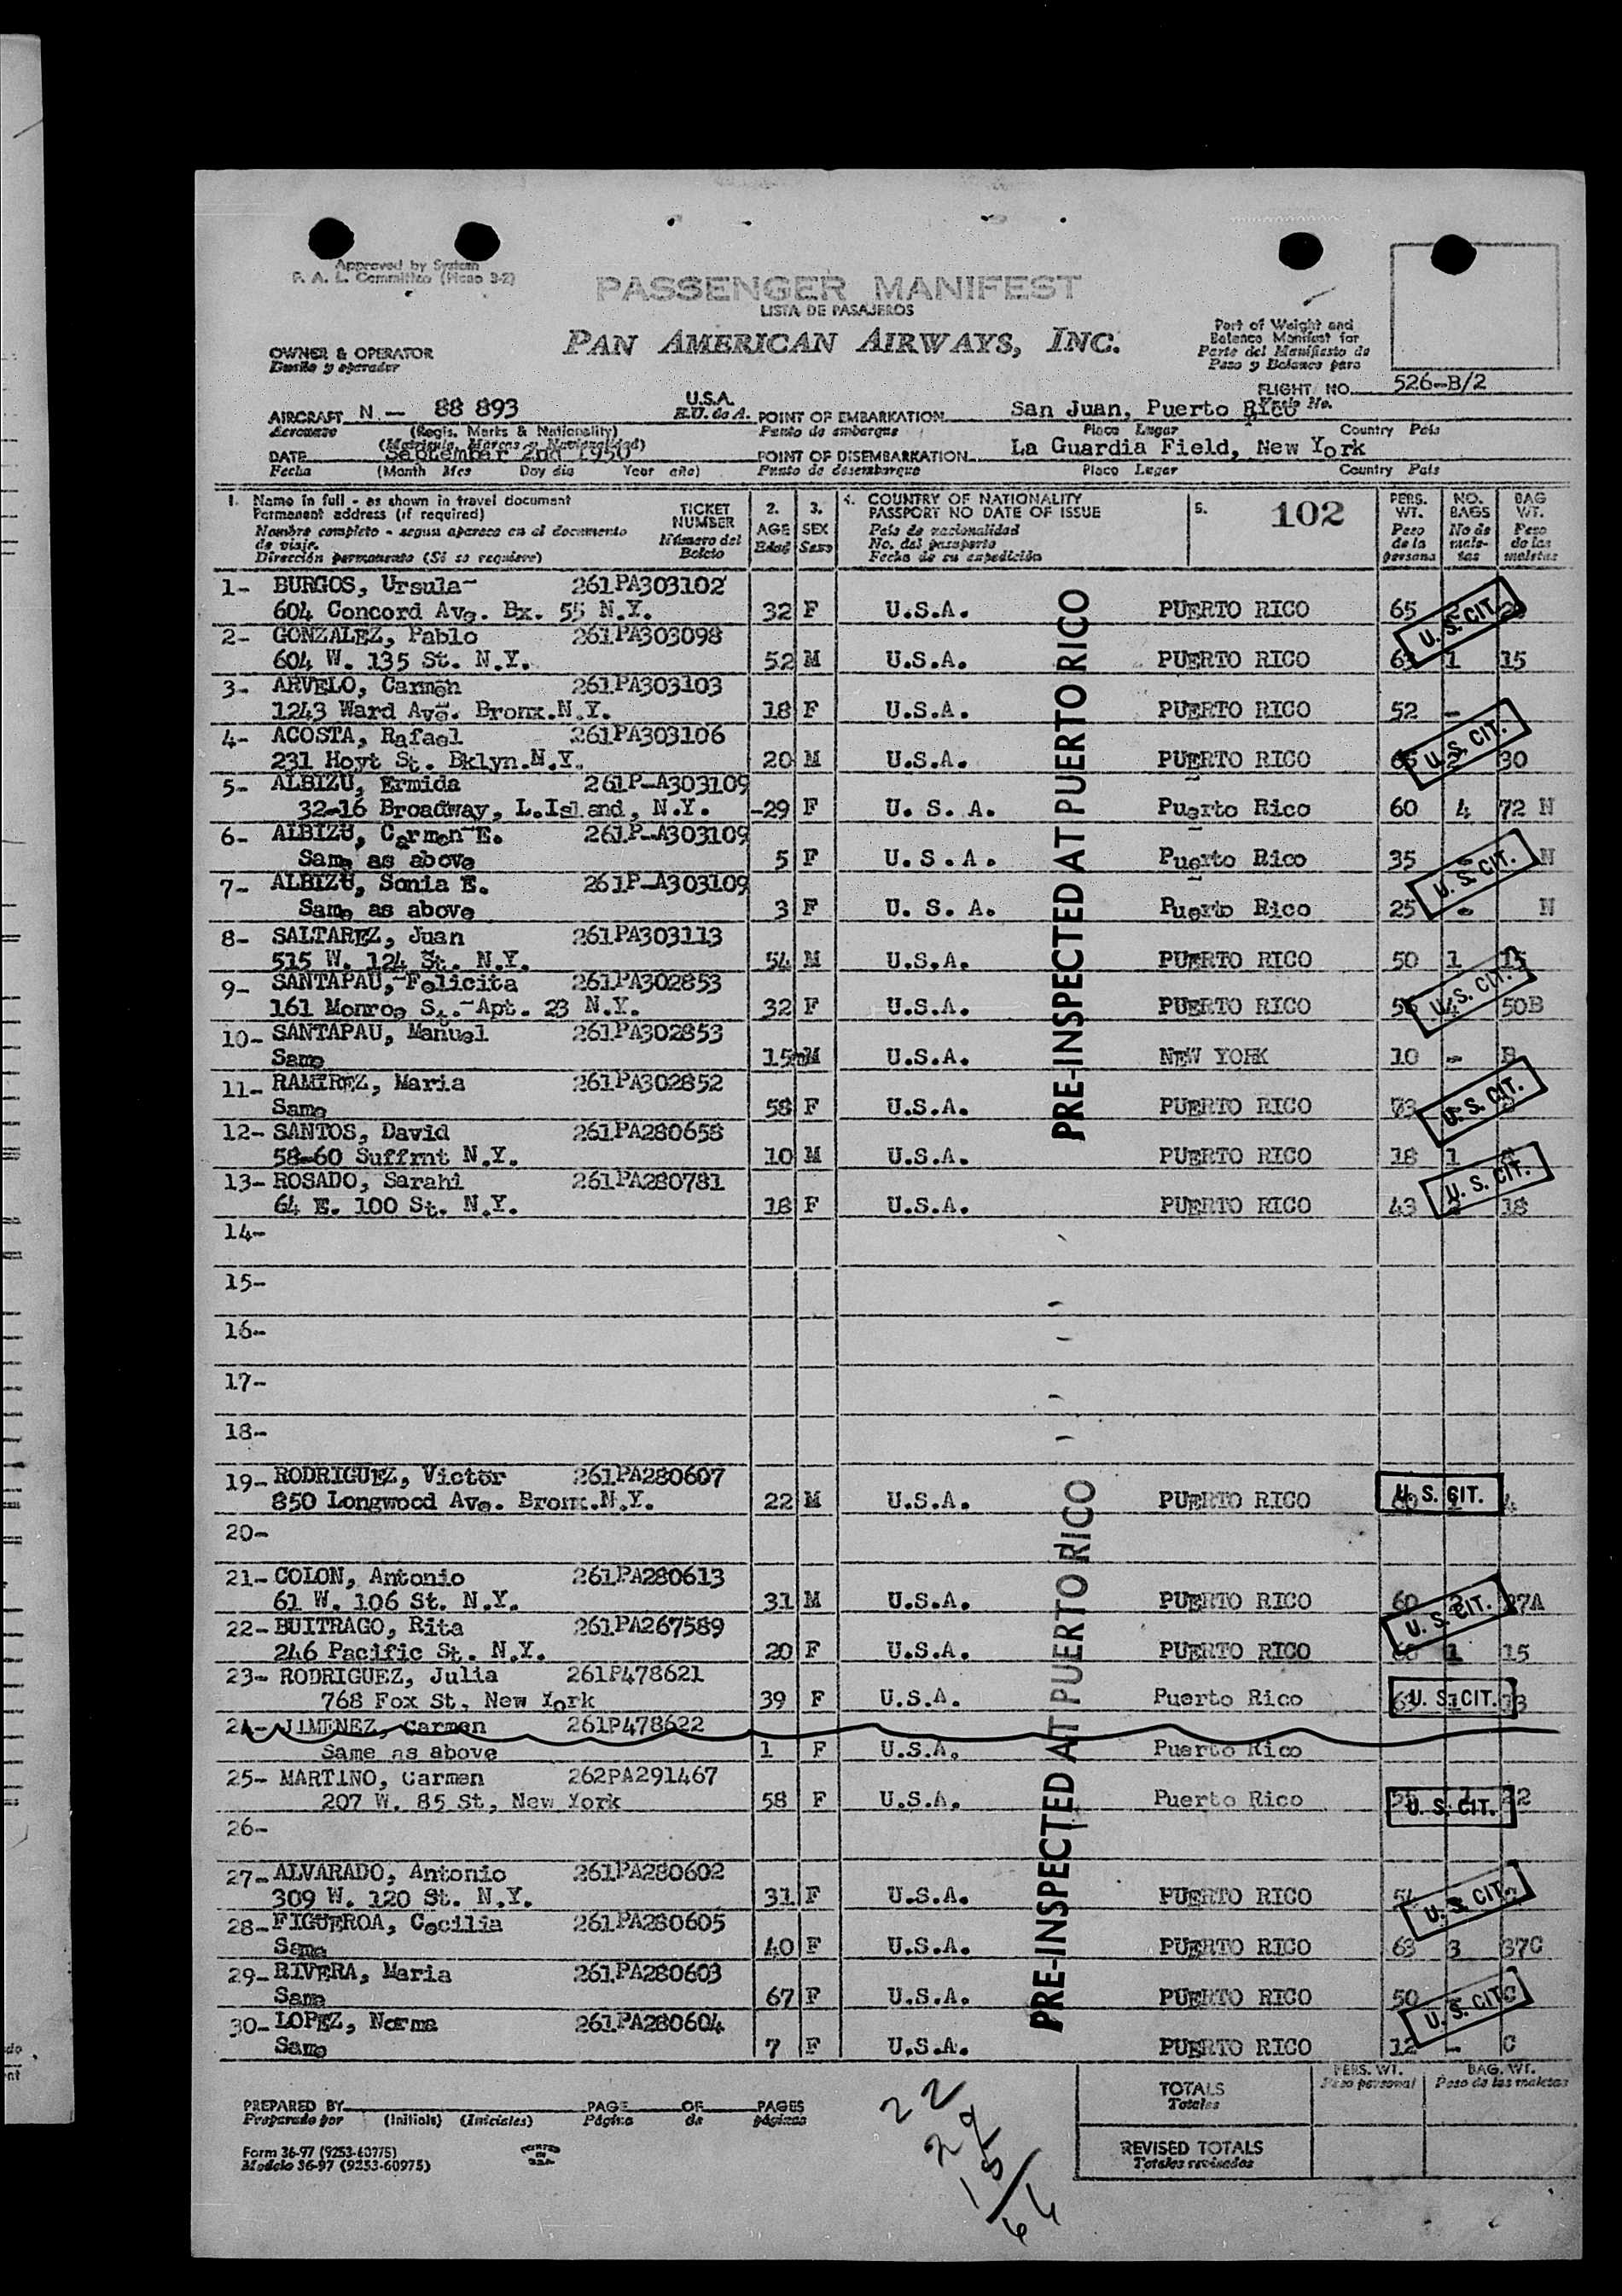 Approved by System
F. A. L. Committee (Picao 3-2)
PASSENGER MANIFEST
LISTA DE PASAJEROS
PAN AMERICAN AIRWAYS, INC.
Part of Weight and
Balance Manifest for
Parte del Manifiesto de
Peso y Balance para
OWNER & OPERATOR
Dueño y operador
FLIGHT NO. 526-B/2
Vuelo No.
AIRCRAFT N - 88 893 U.S.A. POINT OF EMBARKATION San Juan, Puerto Rico
Aeronave (Regis. Marks & Nationality) E.U. de A. Punto de embarque Place Lugar Country País
(Matrícula, Marcas y Nacionalidad)
DATE September 2nd 1950 POINT OF DISEMBARKATION La Guardia Field, New York
Fecha (Month Mes Day día Year año) Punto de desembarque Place Lugar Country País
1. Name in full - as shown in travel document
Permanent address (if required)
Nombre completo - segun aparece en el documento
de viaje.
Dirección permanente (Si se requiere)
TICKET
NUMBER
Número del
Boleto
2.
AGE
Edad
3.
SEX
Sexo
4. COUNTRY OF NATIONALITY
PASSPORT NO DATE OF ISSUE
País de nacionalidad
No. del pasaporte
Fecha de su expedición
5. 102
PERS.
WT.
Peso
de la
persona
NO.
BAGS
No de
male-
tas
BAG
WT.
Peso
de las
maletas
1- BURGOS, Ursula 261PA303102
604 Concord Ave. Bx. 55 N.Y. 32 F U.S.A. PUERTO RICO 65
U. S. CIT.
2- GONZALEZ, Pablo 261PA303098
604 W. 135 St. N.Y. 52 M U.S.A. PUERTO RICO 1 15
3- ARVELO, Carmen 261PA303103
1243 Ward Ave. Bronx.N.Y. 18 F U.S.A. PUERTO RICO 52 -
4- ACOSTA, Rafael 261PA303106
231 Hoyt St. Bklyn.N.Y. 20 M U.S.A. PUERTO RICO 30
U. S. CIT.
5- ALBIZU, Ermida 261P-A303109
32-16 Broadway, L.Island, N.Y. -29 F U. S. A. Puerto Rico 60 4 72 N
6- ALBIZU, Carmen E. 261P-A303109
Same as above 5 F U. S. A. Puerto Rico 35 - N
U. S. CIT.
7- ALBIZU, Sonia E. 261P-A303109
Same as above 3 F U. S. A. Puerto Rico 25 - N
8- SALTAREZ, Juan 261PA303113
515 W. 124 St. N.Y. 54 M U.S.A. PUERTO RICO 50 1 15
9- SANTAPAU, Felicita 261PA302853
161 Monroe St. Apt. 23 N.Y. 32 F U.S.A. PUERTO RICO 4 50B
U. S. CIT.
10- SANTAPAU, Manuel 261PA302853
Same 15m M U.S.A. NEW YORK 10 - B
11- RAMIREZ, Maria 261PA302852
Same 58 F U.S.A. PUERTO RICO 73
U. S. CIT.
12- SANTOS, David 261PA280658
58-60 Suffrnt N.Y. 10 M U.S.A. PUERTO RICO 18 1
13- ROSADO, Sarahi 261PA280781
64 E. 100 St. N.Y. 18 F U.S.A. PUERTO RICO 43 18
U. S. CIT.
PRE-INSPECTED AT PUERTO RICO
14-
15-
16-
17-
18-
19- RODRIGUEZ, Victor 261PA280607
850 Longwood Ave. Bronx.N.Y. 22 M U.S.A. PUERTO RICO 4
U. S. CIT.
20-
21- COLON, Antonio 261PA280613
61 W. 106 St. N.Y. 31 M U.S.A. PUERTO RICO 60 27A
U. S. CIT.
22- BUITRAGO, Rita 261PA267589
246 Pacific St. N.Y. 20 F U.S.A. PUERTO RICO 1 15
23- RODRIGUEZ, Julia 261P478621
768 Fox St, New York 39 F U.S.A. Puerto Rico
U. S. CIT.
24- JIMENEZ, Carmen 261P478622
Same as above 1 F U.S.A. Puerto Rico
25- MARTINO, Carmen 262PA291467
207 W. 85 St, New York 58 F U.S.A. Puerto Rico
U. S. CIT.
26-
27- ALVARADO, Antonio 261PA280602
309 W. 120 St. N.Y. 31 F U.S.A. PUERTO RICO
U. S. CIT.
28- FIGUEROA, Cecilia 261PA280605
Same 40 F U.S.A. PUERTO RICO 63 3 37C
29- RIVERA, Maria 261PA280603
Same 67 F U.S.A. PUERTO RICO 50 - C
U. S. CIT.
30- LOPEZ, Norma 261PA280604
Same 7 F U.S.A. PUERTO RICO 12 - C
PRE-INSPECTED AT PUERTO RICO
PERS. WT.
Peso personal
BAG. WT.
Peso de las maletas
TOTALS
Totales
REVISED TOTALS
Totales revisados
PREPARED BY PAGE OF PAGES
Preparado por (Initials) (Iniciales) Página de páginas
Form 36-97 (9253-60975)
Modelo 36-97 (9253-60975)
PRINTED
IN
U.S.A.
22